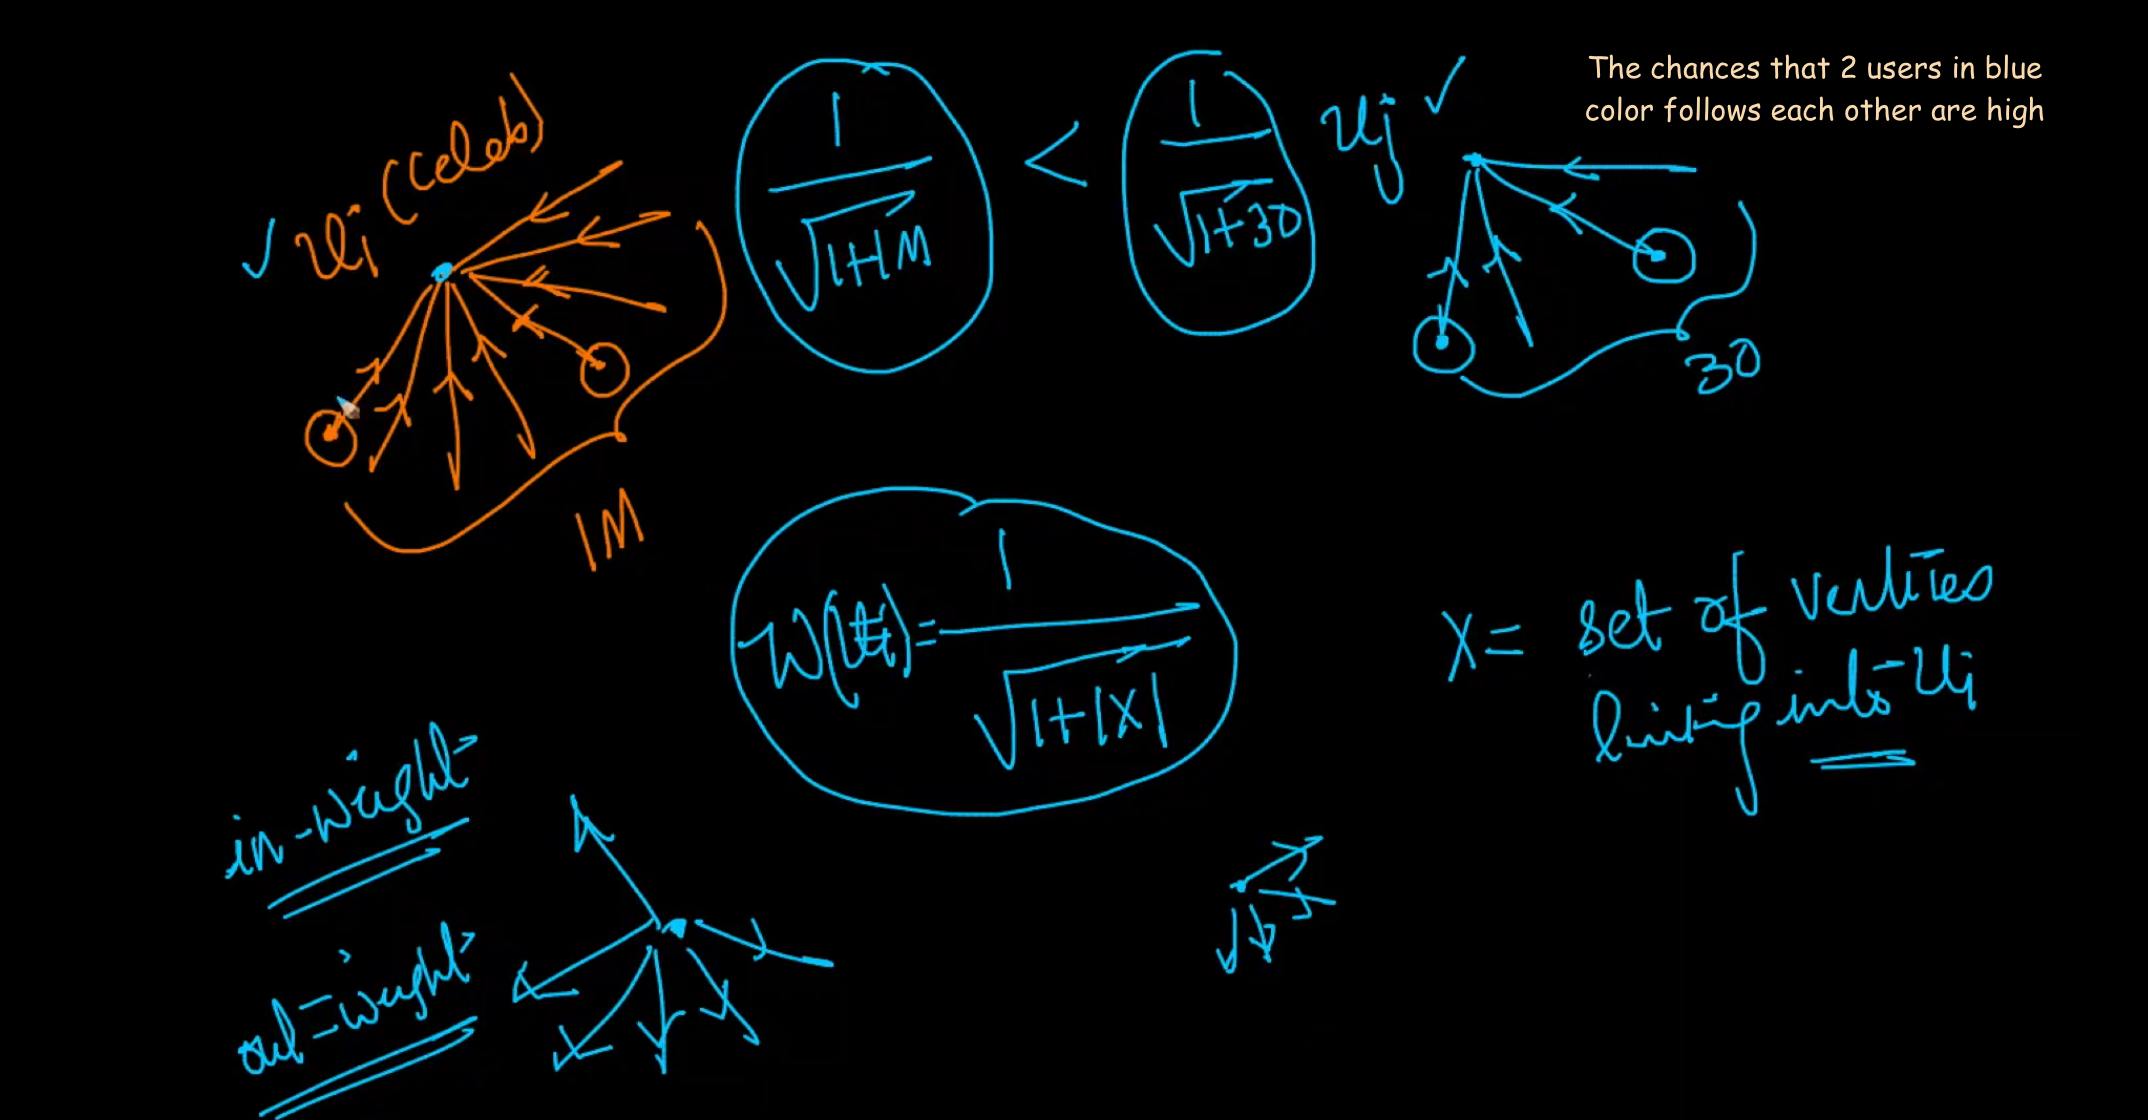 The chances that 2 users in blue
color follows each other are high
✓ ui (celeb)
1
√1+1M
<
1
√1+30
uj ✓
30
1M
W(ui) = 1
√1+|X|
X = set of vertices
linking into ui
in-weight
out-weight